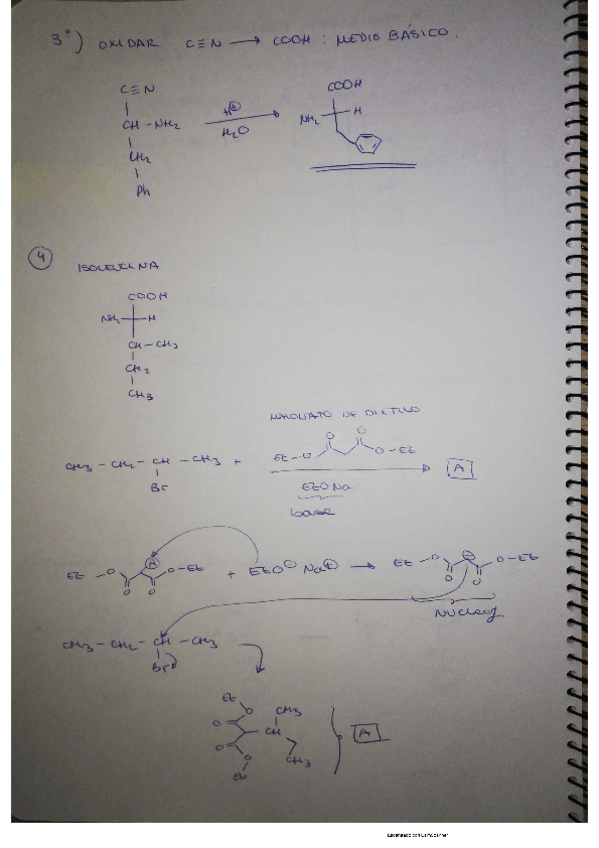 3º) OXIDAR C≡N → COOH : MEDIO BÁSICO.
C≡N
CH - NH2
CH2
Ph
H⊕
H2O
COOH
NH2 H
4 ISOLEUCINA
COOH
NH2 H
CH - CH3
CH2
CH3
MALONATO DE DIETILO
O O
Et - O O - Et
CH3 - CH2 - CH - CH3 + → A
Br
EtONa
base
H
Et - O O - Et + EtO⊖ Na⊕ → Et - O ⊖ O - Et
O O O O
NUCLEOF.
CH3 - CH2 - CH - CH3
Br
Et
O CH3
O CH A
O CH3
O
Et
Escaneado con CamScanner